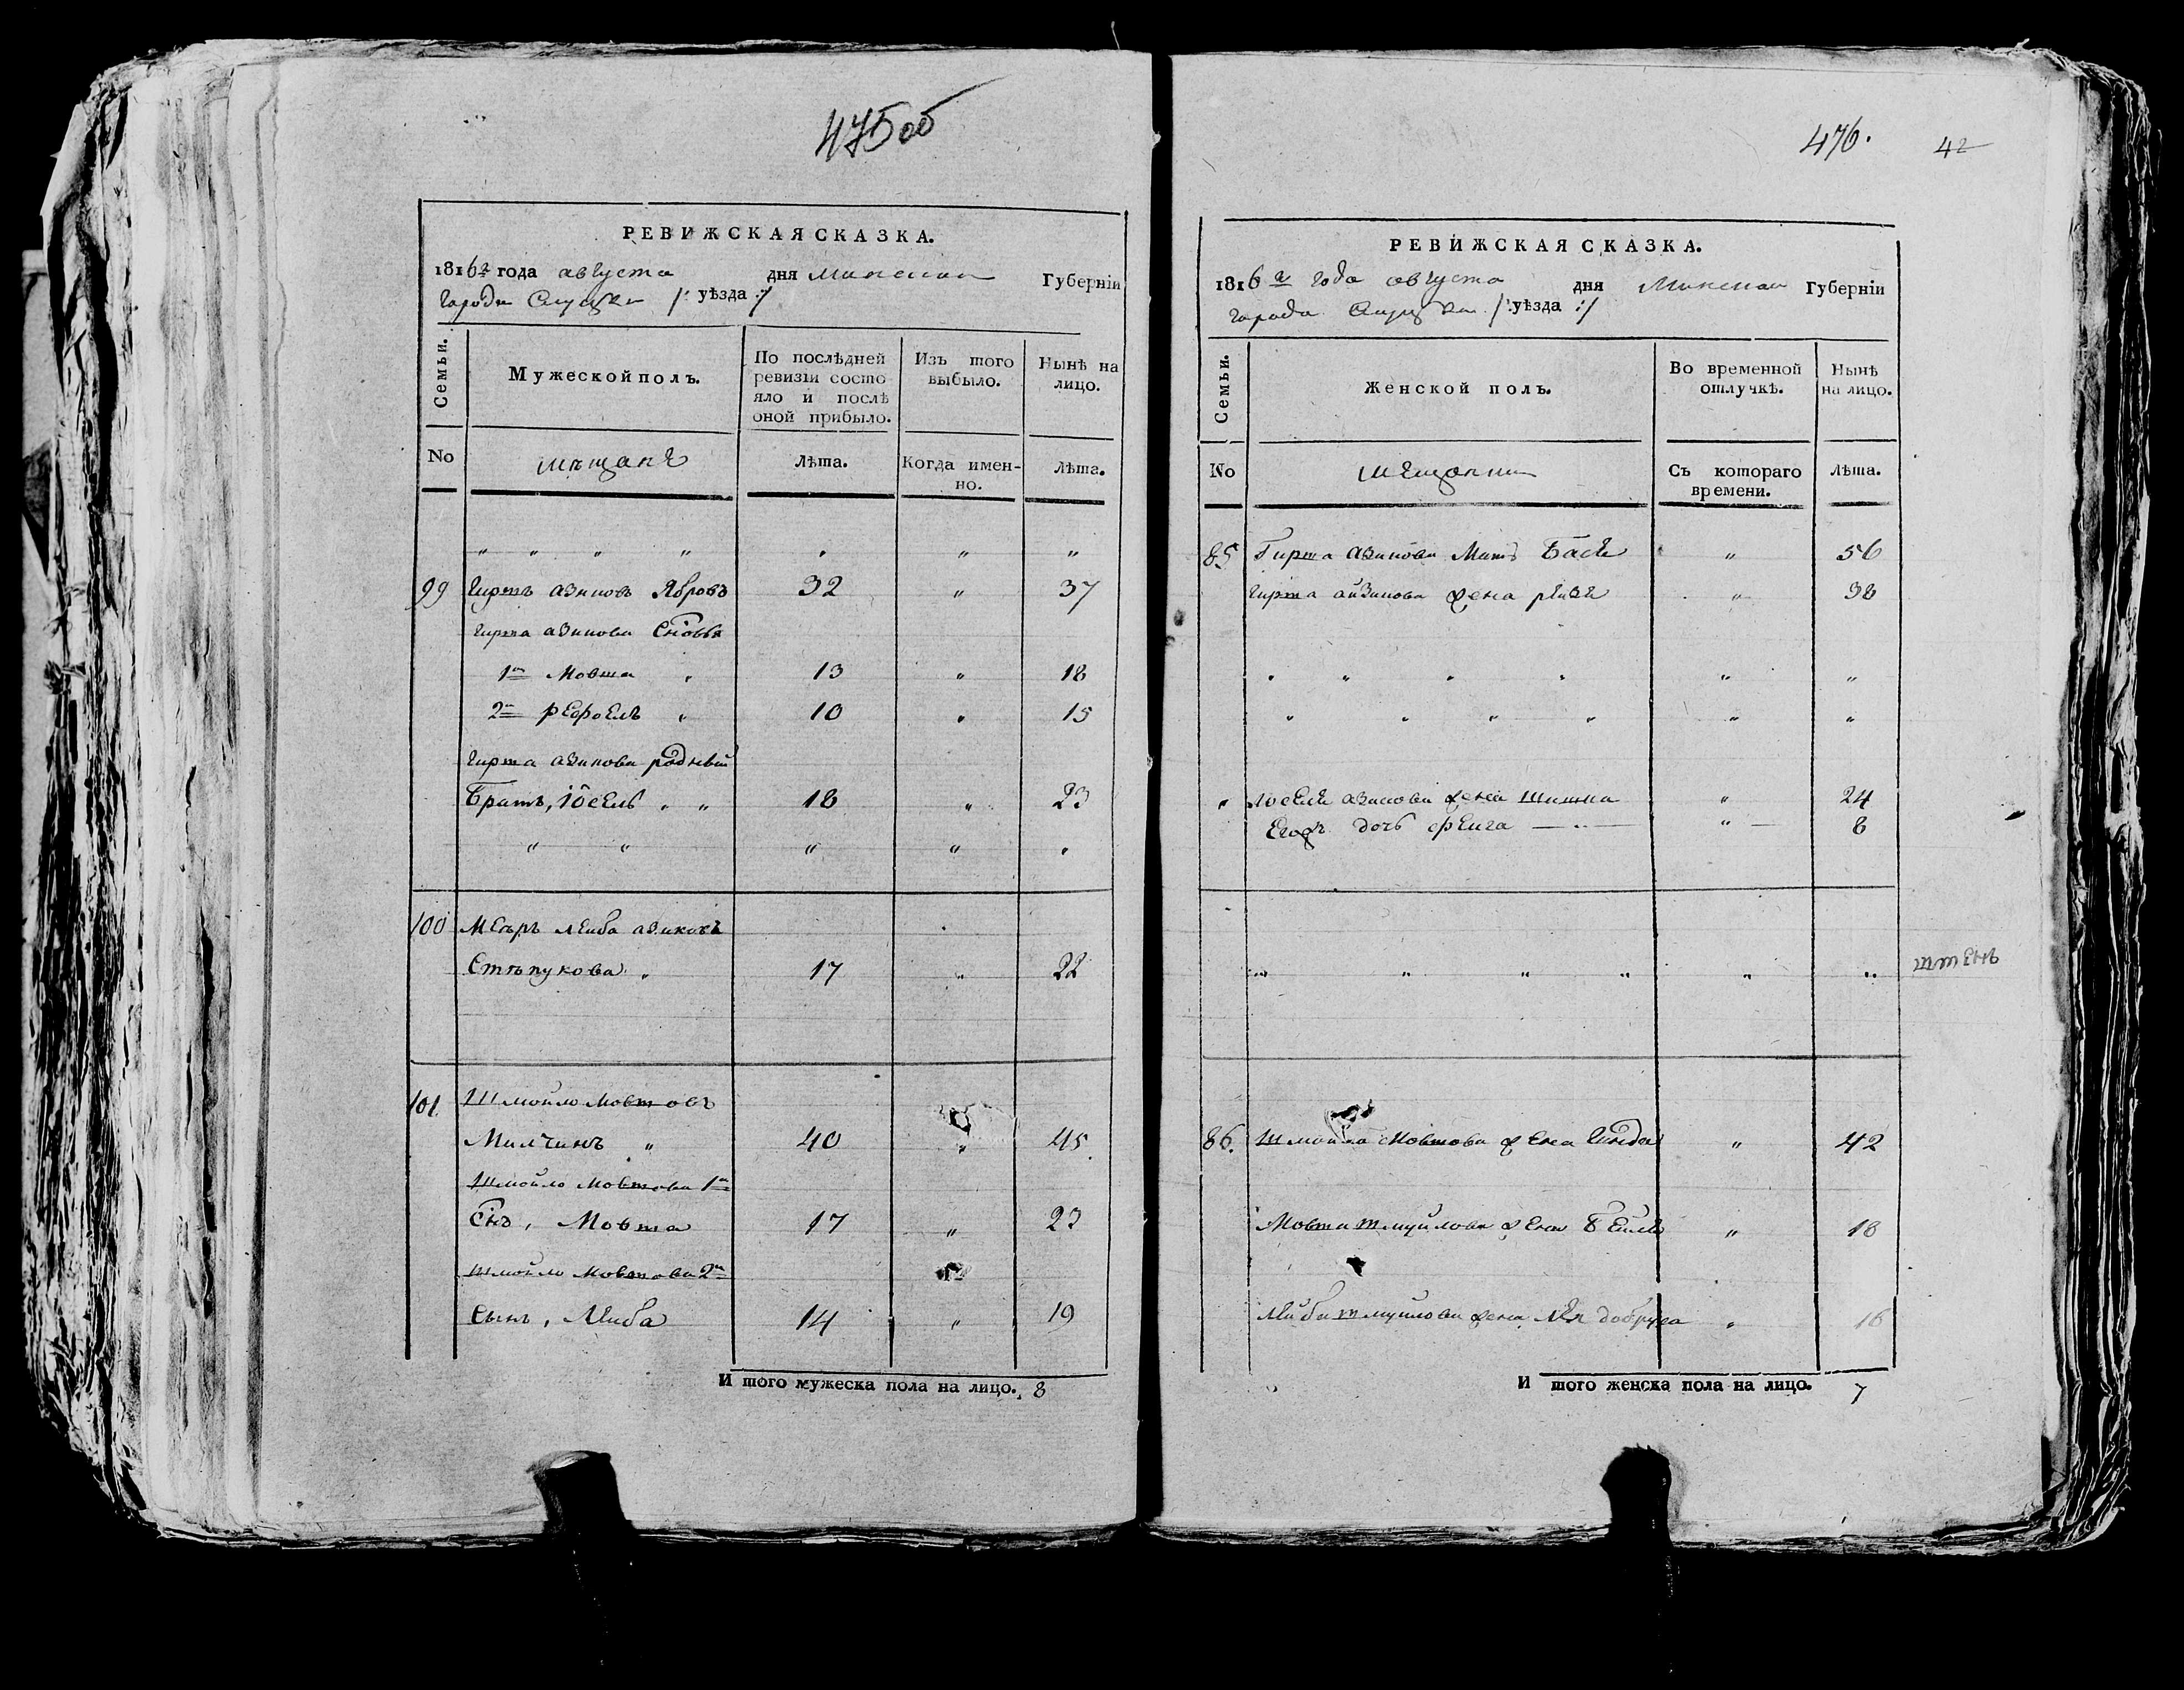 475об
РЕВИЖСКАЯ СКАЗКА.
1816го года августа дня Минской Губерніи
города Слуцка /: уѣзда :/
Семьи.
Мужеской полъ.
По послѣдней ревизіи состояло и послѣ оной прибыло.
Изъ того выбыло.
Нынѣ на лицо.
No мѣщане Лѣта. Когда именно. Лѣта.
" " " " " " "
99 Гиршъ Айзиковъ 32 " 37
Гирша Айзикова Сновья
1й Мовша " 13 " 18
2й " 10 " 15
Гирша Айзикова родный
Братъ, Іосель " " 18 " 23
" " " " "
100 Мееръ Лейба Айзиковъ
17 " 22
101 Шмойло Мовшовъ
Милчинъ " 40 " 45
Шмойло Мовшова 1й
Снъ, Мовша 17 " 23
Шмойло Мовшова 2й
Сынъ, Лейба 14 " 19
И того мужеска пола на лицо. 8
476. 42
РЕВИЖСКАЯ СКАЗКА.
1816го года августа дня Минской Губерніи
города Слуцка /: уѣзда :/
Семьи.
Женской полъ.
Во временной отлучкѣ.
Нынѣ на лицо.
No мещанки Съ котораго времени. Лѣта.
85 Гирша Айзикова Мать Бася " 56
Гирша Айзикова жена " 38
" " " " " "
" " " " " "
" Іоселя Айзикова жена " 24
Егожъ дочь Фейга — " — " — 8
" " " " " "
86. Шмойла Мовшова жена " 42
Мовши Шмуйлова жена Бейля " 18
Лейби Шмуйлова жена " 16
И того женска пола на лицо. 7